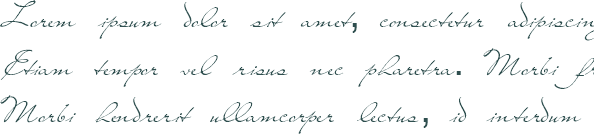 Lorem ipsum dolor sit amet, consectetur adipiscing
Etiam tempor vel risus nec pharetra. Morbi fr
Morbi hendrerit ullamcorper lectus, id interdum